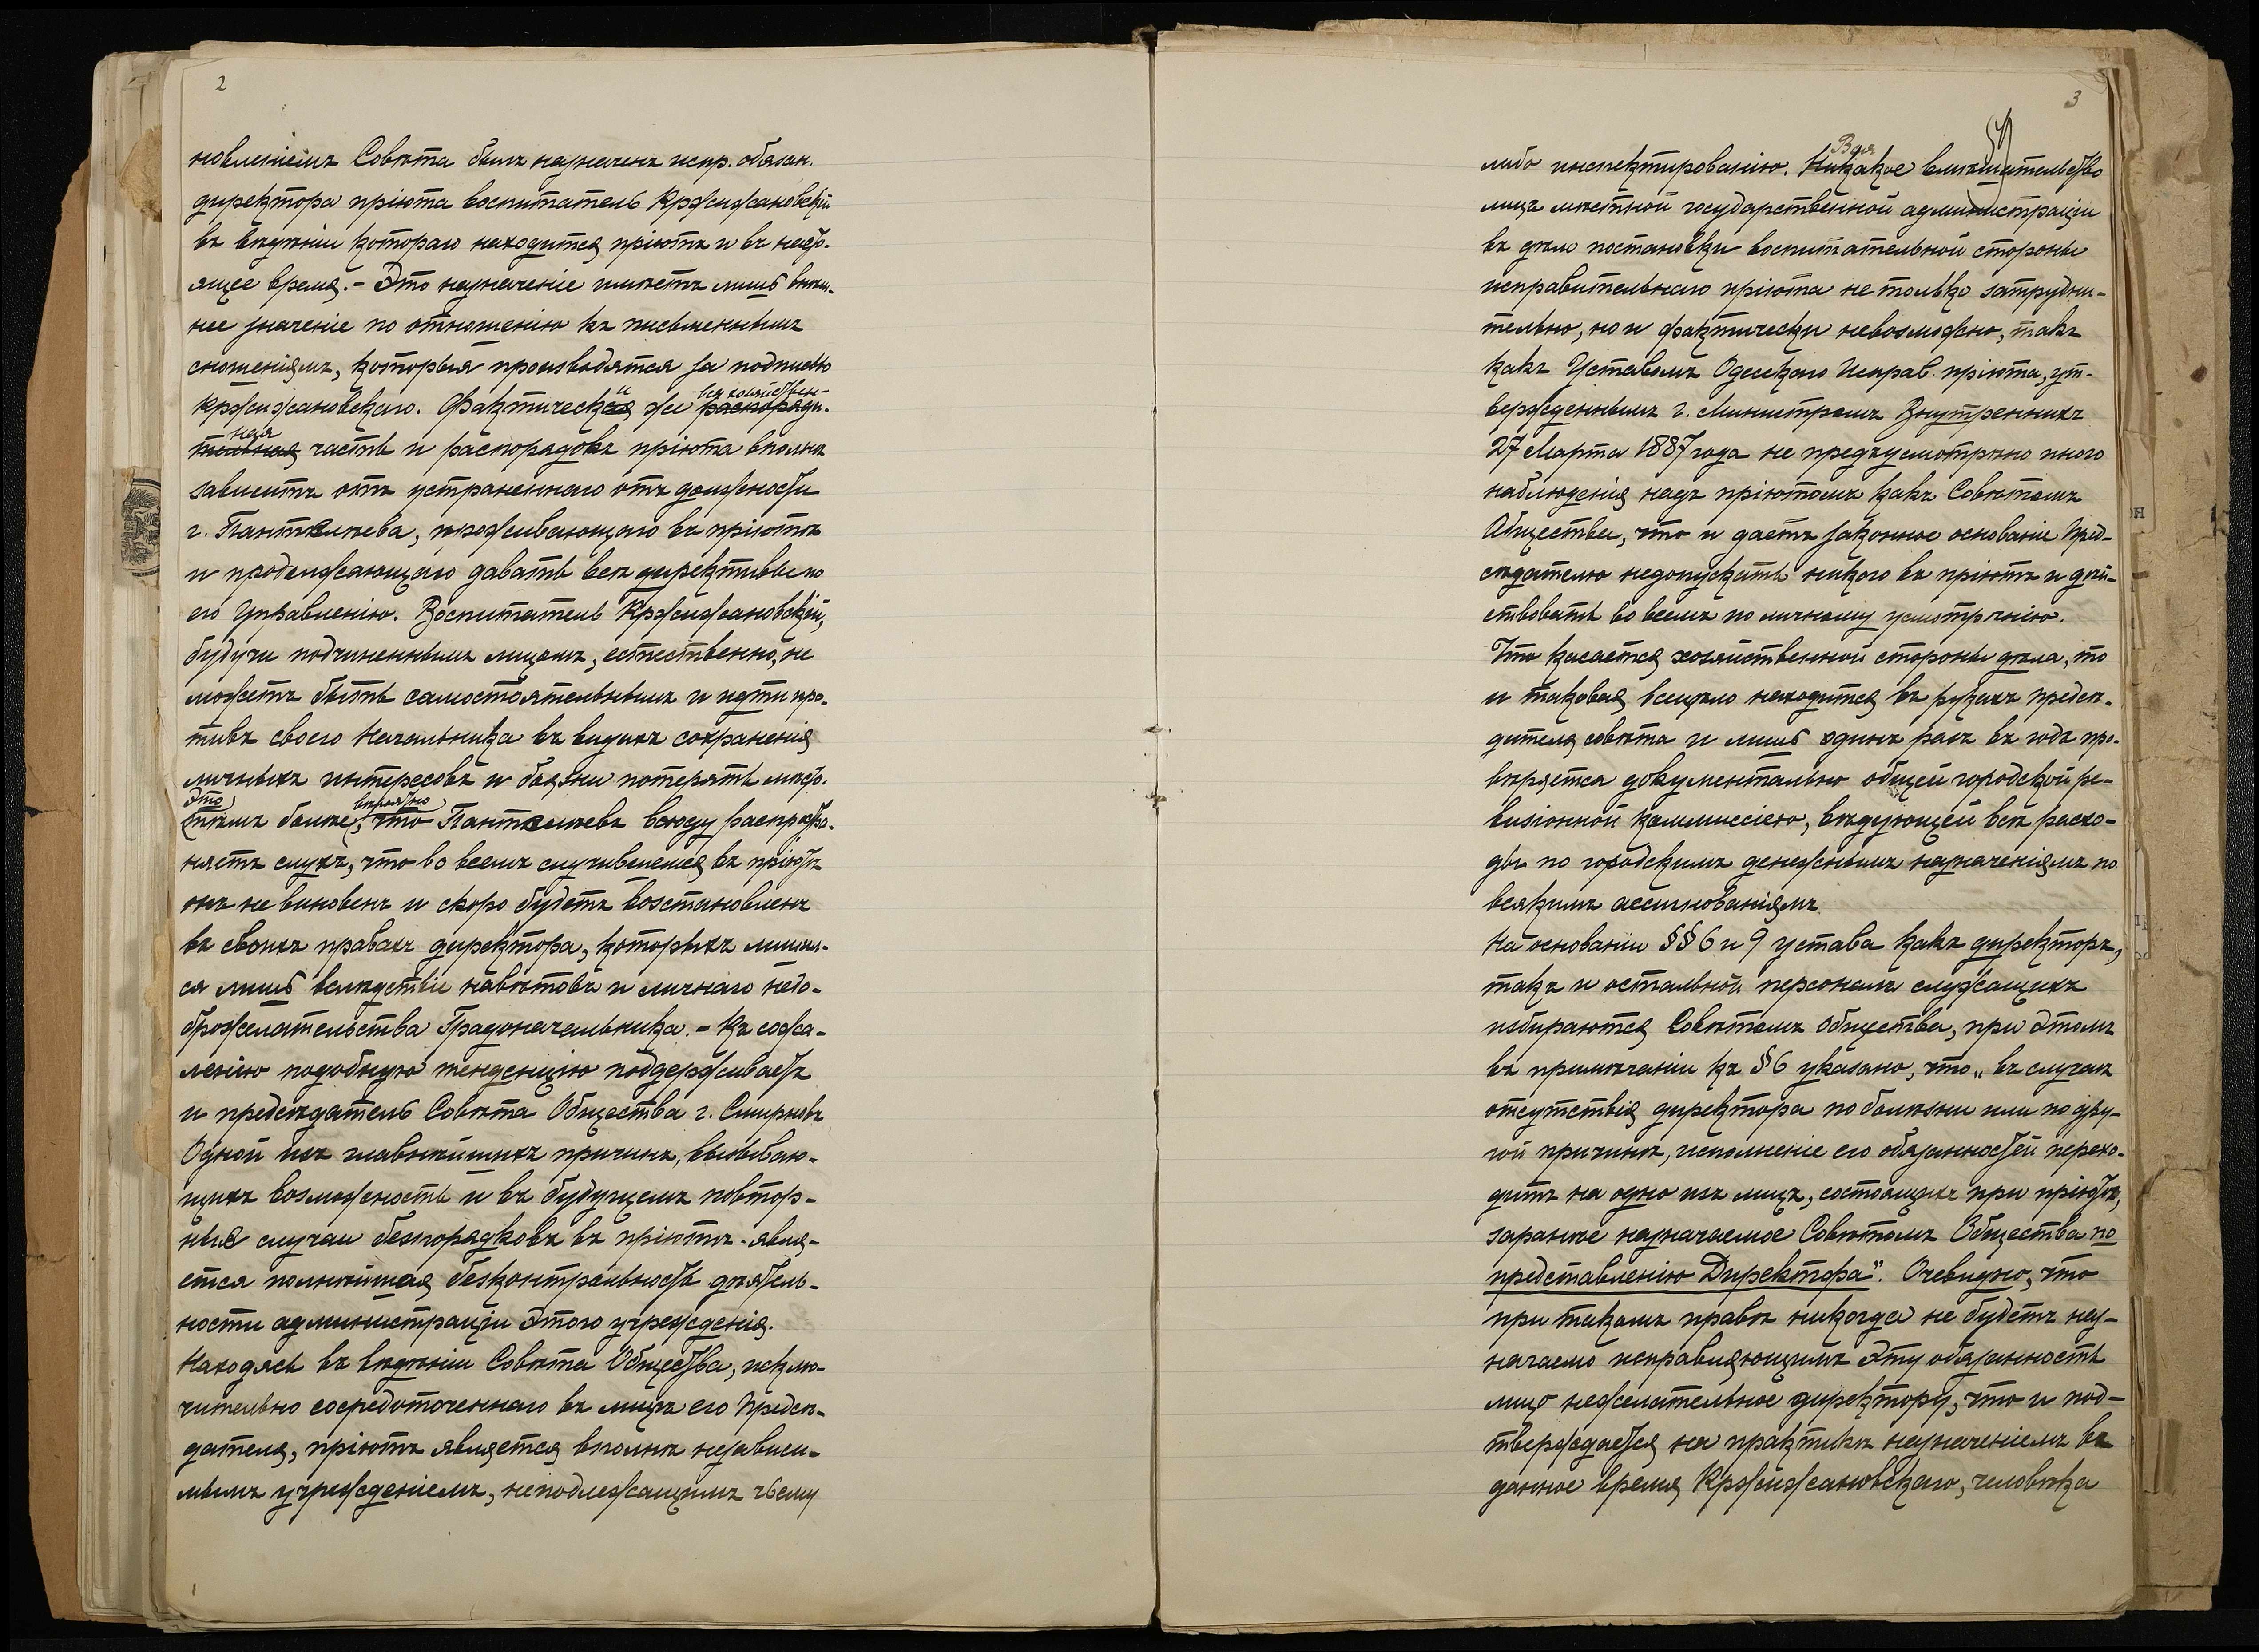 2
новленіемъ Совѣта былъ назначенъ испр. обязан.
директора пріюта воспитатель Кржижановскій
въ вѣдѣніи котораго находится пріютъ и въ насто-
ящее время. - Это назначеніе имѣетъ лишь внѣш-
нее значеніе по отношенію къ письменнымъ
сношеніямъ, которыя производятся за подписью
Кржижановскаго. Фактически же вся хозяйствен-
ная часть и распорядокъ пріюта вполнѣ
зависитъ отъ устраненнаго отъ должности
г. Пантелѣева, проживающаго въ пріютѣ
и продолжающаго давать всѣ директивы по
его управленію. Воспитатель Кржижановскій,
будучи подчиненнымъ лицомъ, естественно, не
можетъ быть самостоятельнымъ и идти про-
тивъ своего Начальника въ видахъ сохраненія
личныхъ интересовъ и боязни потерять мѣсто.
Это
тѣмъ болѣе, вѣроятно что Пантелѣевъ всюду распростра-
няетъ слухъ, что во всемъ случившемся въ пріютѣ
онъ не виновенъ и скоро будетъ возстановленъ
въ своихъ правахъ директора, которыхъ лишил-
ся лишь вслѣдствіе навѣтовъ и личнаго недо-
брожелательства Градоначальника. - Къ сожа-
лѣнію подобную тенденцію поддерживаетъ
и предсѣдатель Совѣта Общества г. Смирновъ
Одной изъ главнѣйшихъ причинъ, вызываю-
щихъ возможность и въ будущемъ повтор-
ные случаи безпорядковъ въ пріютѣ - явля-
ется полнѣйшая безконтрольность дѣятель-
ности администраціи этого учрежденія.
Находясь въ вѣдѣніи Совѣта Общества, исклю-
чительно сосредоточеннаго въ лицѣ его Предсѣ-
дателя, пріютъ является вполнѣ независи-
мымъ учрежденіемъ, неподлежащимъ чьему
3
либо инспектированію. Никакое вмѣшательство
лицъ мѣстной государственной администраціи
въ дѣло постановки воспитательной стороны
исправительнаго пріюта не только затрудни-
тельно, но и фактически невозможно, такъ
какъ Уставомъ Одесскаго Исправ. пріюта, ут-
вержденнымъ г. Министромъ Внутреннихъ
27 Марта 1887 года не предусмотрѣно иного
наблюденія надъ пріютомъ какъ Совѣтомъ
Общества, что и даетъ законное основаніе Пред-
сѣдателю недопускать никого въ пріютъ и дѣй-
ствовать во всемъ по личному усмотрѣнію.
Что касается хозяйственной стороны дѣла, то
и таковая всецѣло находится въ рукахъ предсѣ-
дителя совѣта и лишь одинъ разъ въ годъ про-
вѣряется документально общей городской ре-
визіонной коммиссіею, вѣдующей всѣ расхо-
ды по городскимъ денежнымъ назначеніямъ по
всякимъ ассигнованіямъ
На основаніи §§ 6 и 9 устава какъ директоръ,
такъ и остальной персоналъ служащихъ
избираются Совѣтомъ Общества, при этомъ
въ примѣчаніи къ § 6 указано, что „въ случаѣ
отсутствія директора по болѣзни или по дру-
гой причинѣ, исполненіе его обязанностей перехо-
дитъ на одно изъ лицъ, состоящихъ при пріютѣ,
заранѣе назначаемое Совѣтомъ Общества по
представленію Директора“. Очевидно, что
при такомъ правѣ никогда не будетъ наз-
начаемо исправляющимъ эту обязанность
лицо нежелательное директору, что и под-
тверждается на практикѣ назначеніемъ въ
данное время Кржижановскаго, человѣка